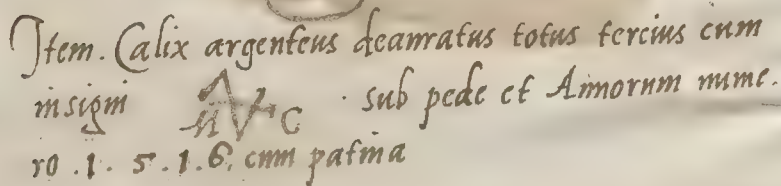 Item. Calix argenteus deauratus totus tercius cum
insigni M C . sub pede et Annorum nume.
ro .1. 5.1.6. cum patina